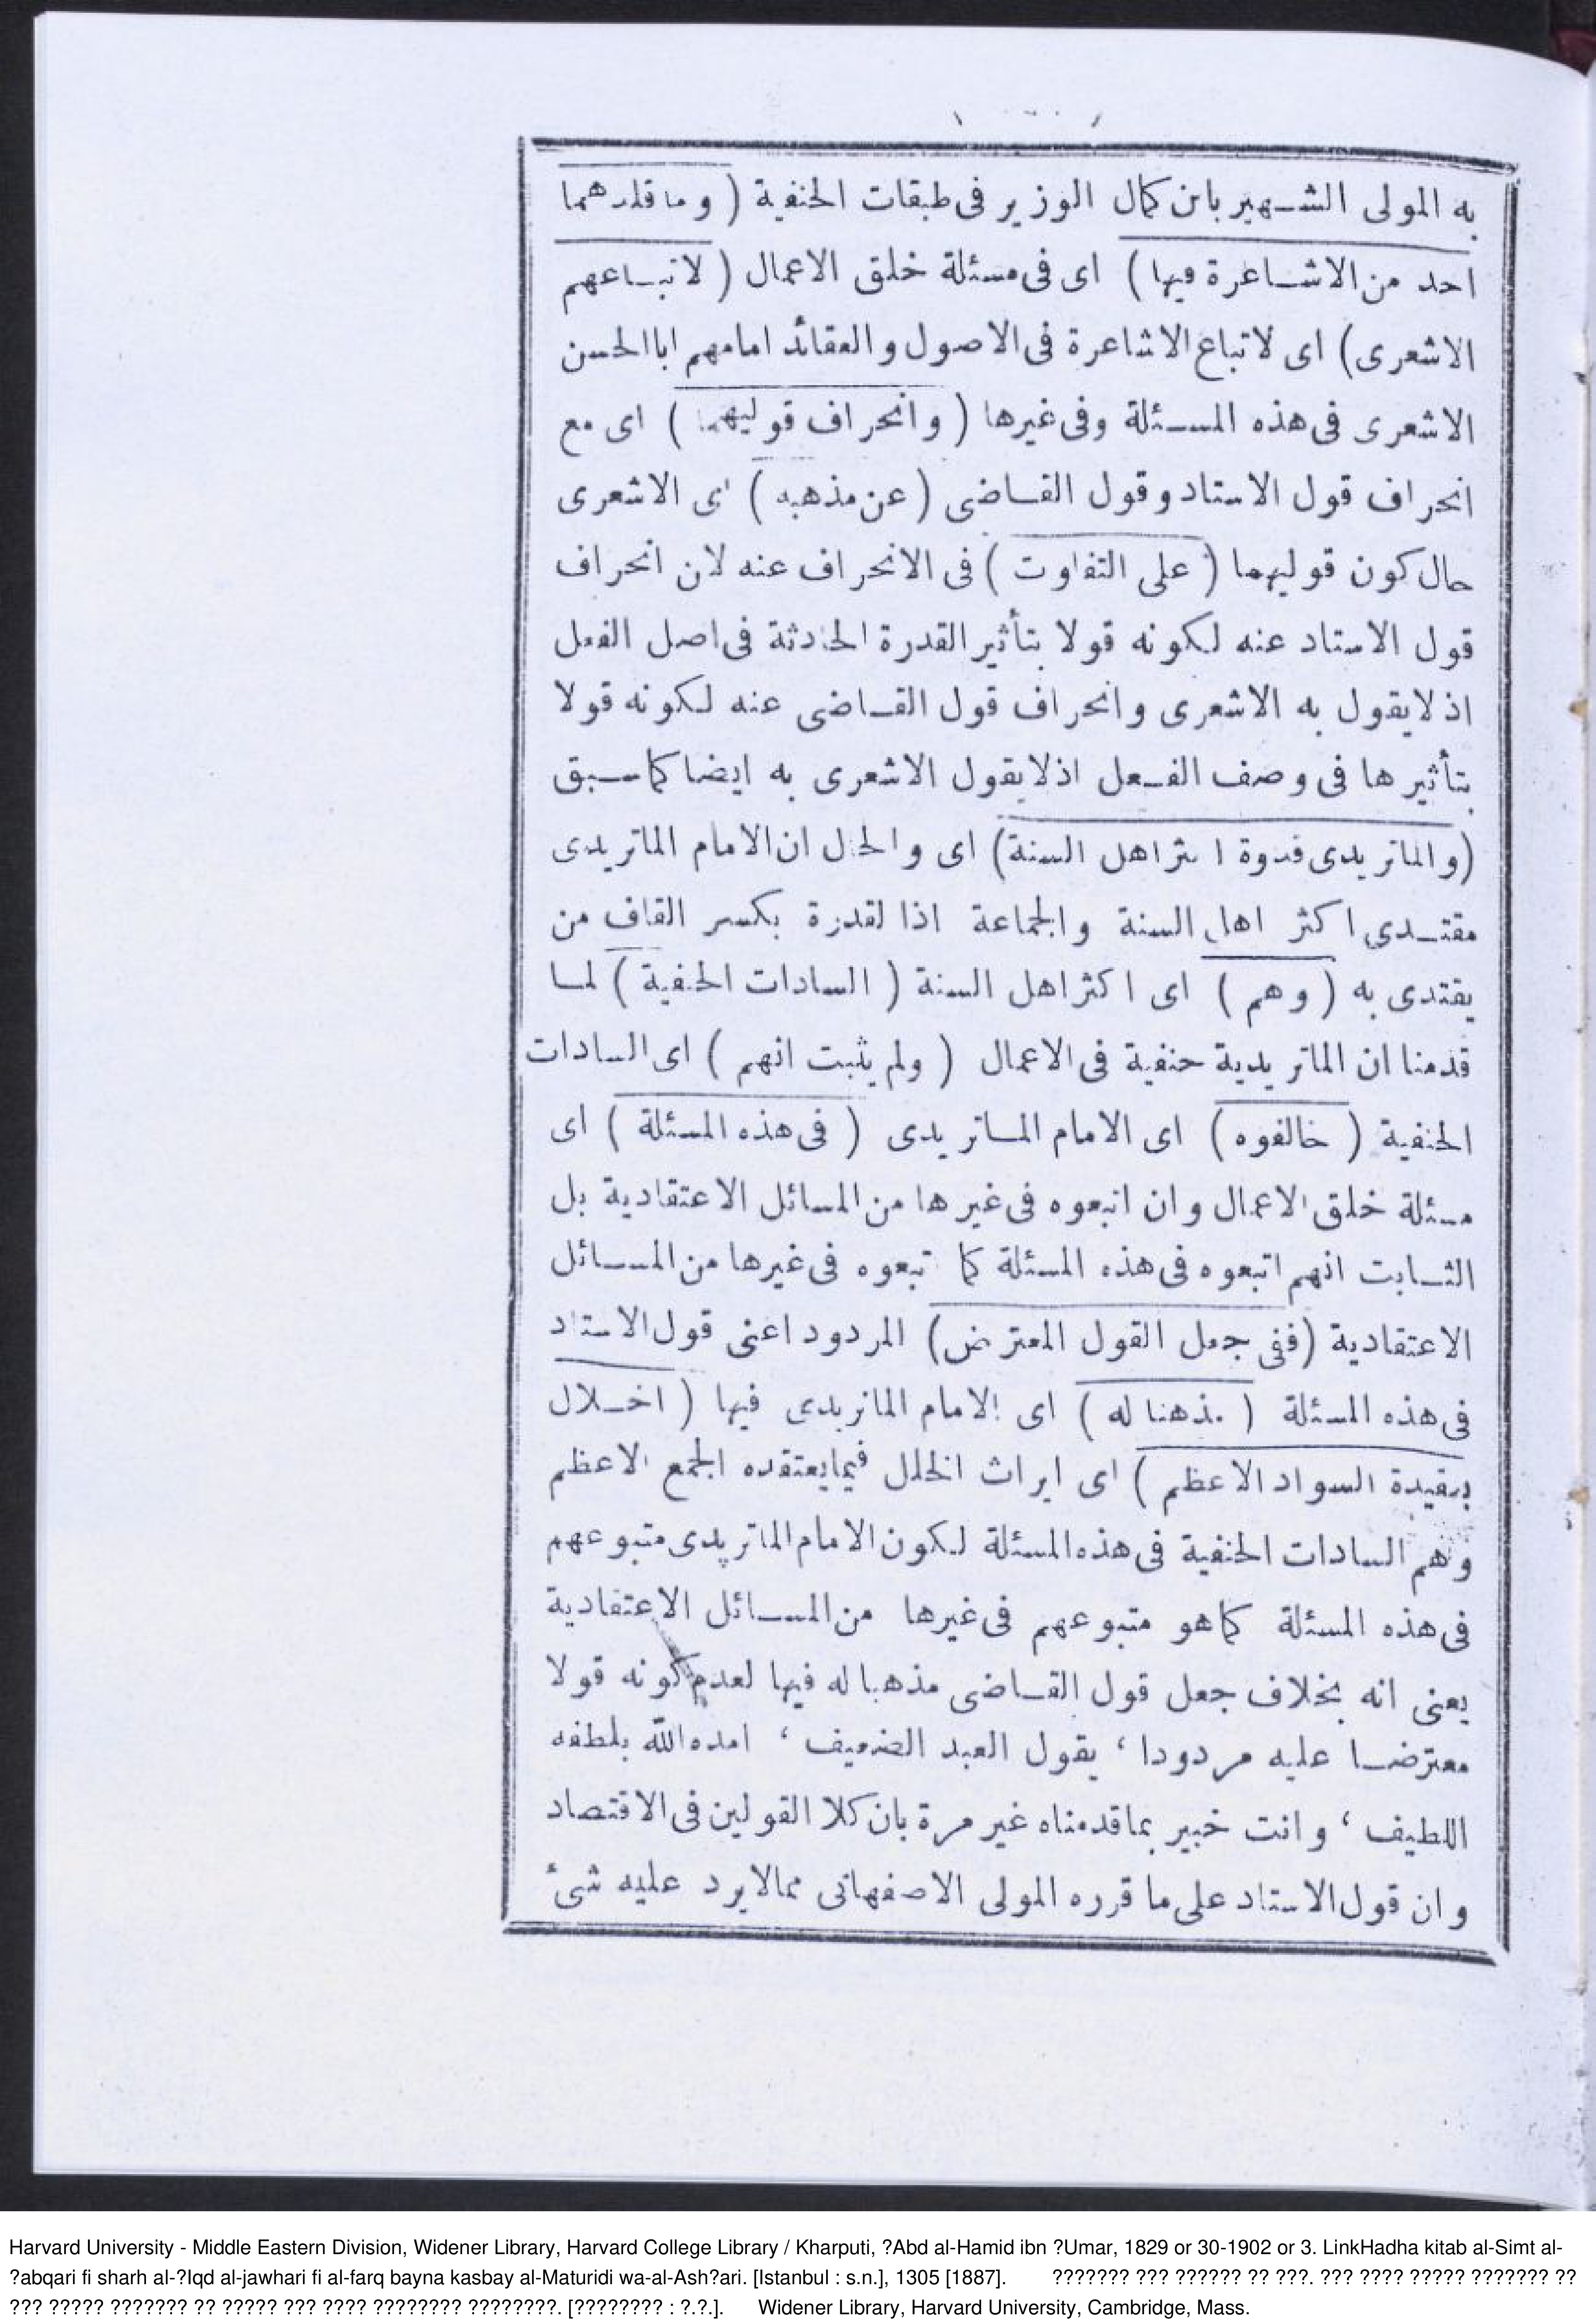 به المولى الشهير بابن كمال الوزير فى طبقات الحنفية ( وما قلدهما
احد من الاشاعرة فيها ) اى فى مسئلة خلق الاعمال ( لاتباعهم
الاشعرى) اى لاتباع الاشاعرة فى الاصول والعقائد امامهم اباالحسن
الاشعرى فى هذه المسئلة وفى غيرها ( وانحراف قوليهما ) اى مع
انحراف قول الاستاد وقول القاضى ( عن مذهبه ) اى الاشعرى
حال كون قوليهما ( على التفاوت ) فى الانحراف عنه لان انحراف
قول الاستاد عنه لكونه قولا بتأثير القدرة الحادثة فى اصل الفعل
اذ لايقول به الاشعرى وانحراف قول القاضى عنه لكونه قولا
بتأثيرها فى وصف الفعل اذلايقول الاشعرى به ايضا كما سبق
(والماتريدى قدوة اكثر اهل السنة) اى والحال ان الامام الماتريدى
مقتدى اكثر اهل السنة والجماعة اذا لقدرة بكسر القاف من
يقتدى به ( وهم ) اى اكثر اهل السنة ( السادات الحنفية ) لما
قدمنا ان الماتريدية حنفية فى الاعمال ( ولم يثبت انهم ) اى السادات
الحنفية ( خالفوه ) اى الامام الماتريدى ( فى هذه المسئلة ) اى
مسئلة خلق الاعمال وان اتبعوه فى غيرها من المسائل الاعتقادية بل
الثابت انهم اتبعوه فى هذه المسئلة كما تبعوه فى غيرها من المسائل
الاعتقادية (ففى جعل القول المعترض) المردود اعنى قول الاستاد
فى هذه المسئلة ( مذهبا له ) اى الامام الماتريدى فيها ( اخلال
بعقيدة السواد الاعظم ) اى ايراث الخلل فيما يعتقده الجمع الاعظم
وهم السادات الحنفية فى هذه المسئلة لكون الامام الماتريدى متبوعهم
فى هذه المسئلة كما هو متبوعهم فى غيرها من المسائل الاعتقادية
يعنى انه بخلاف جعل قول القاضى مذهبا له فيها لعدم كونه قولا
معترضا عليه مردودا ، يقول العبد الضعيف ، امده الله بلطفه
اللطيف ، وانت خبير بما قدمناه غير مرة بان كلا القولين فى الاقتصاد
وان قول الاستاد على ما قرره المولى الاصفهانى ممالا يرد عليه شئ
Harvard University - Middle Eastern Division, Widener Library, Harvard College Library / Kharputi, ?Abd al-Hamid ibn ?Umar, 1829 or 30-1902 or 3. LinkHadha kitab al-Simt al-
?abqari fi sharh al-?Iqd al-jawhari fi al-farq bayna kasbay al-Maturidi wa-al-Ash?ari. [Istanbul : s.n.], 1305 [1887]. ??????? ??? ?????? ?? ???. ??? ???? ????? ??????? ??
??? ????? ??????? ?? ????? ??? ???? ???????? ????????. [???????? : ?.?.]. Widener Library, Harvard University, Cambridge, Mass.